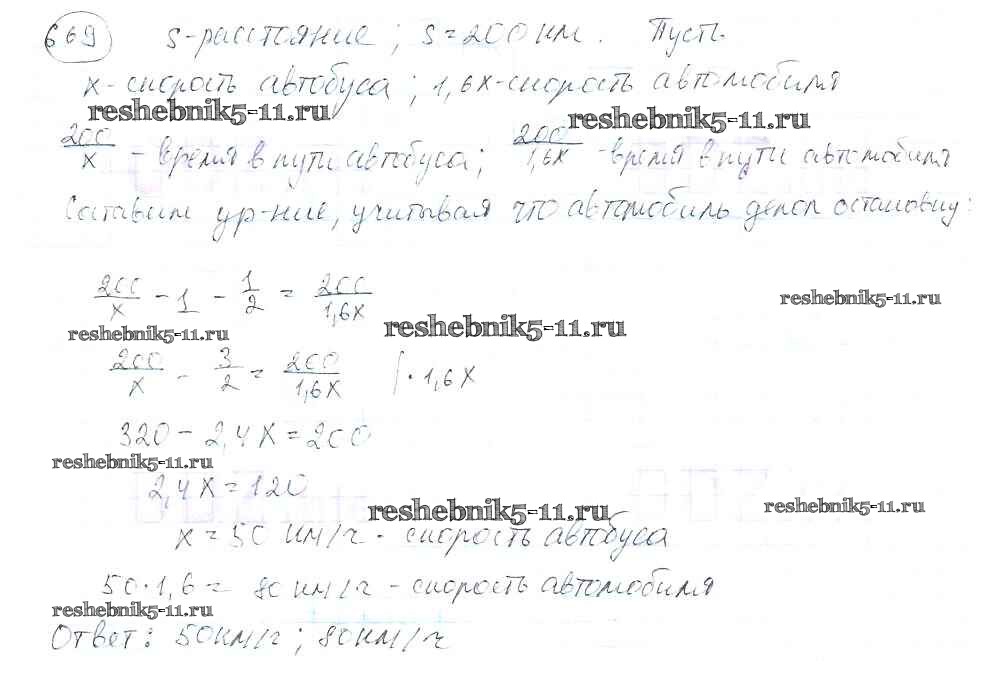 669 S-расстояние; S=200 км. Пусть
x-скорость автобуса; 1,6x-скорость автомобиля
reshebnik5-11.ru reshebnik5-11.ru
200/x - время в пути автобуса; 200/1,6x - время в пути автомобиля
Составим ур-ние, учитывая что автомобиль делал остановку:
200/x - 1 - 1/2 = 200/1,6x
reshebnik5-11.ru
reshebnik5-11.ru reshebnik5-11.ru
200/x - 3/2 = 200/1,6x | · 1,6x
320 - 2,4x = 200
reshebnik5-11.ru
2,4x = 120
reshebnik5-11.ru reshebnik5-11.ru
x = 50 км/ч - скорость автобуса
50·1,6 = 80 км/ч - скорость автомобиля
reshebnik5-11.ru
Ответ: 50км/ч; 80км/ч